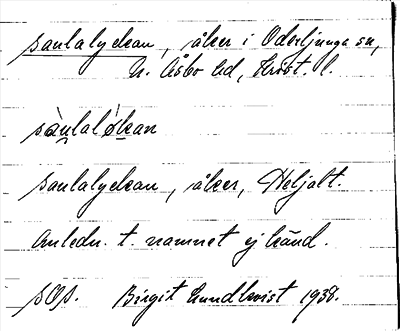 saulalyckan, åker i Oderljunga sn,
N. Åsbo hd, Krist. l.
sàulalỳkan
saulalyckan, åker, Heljalt.
Anledn. t. namnet ej känd.
SOÅ. Birgit Lundkvist 1938.